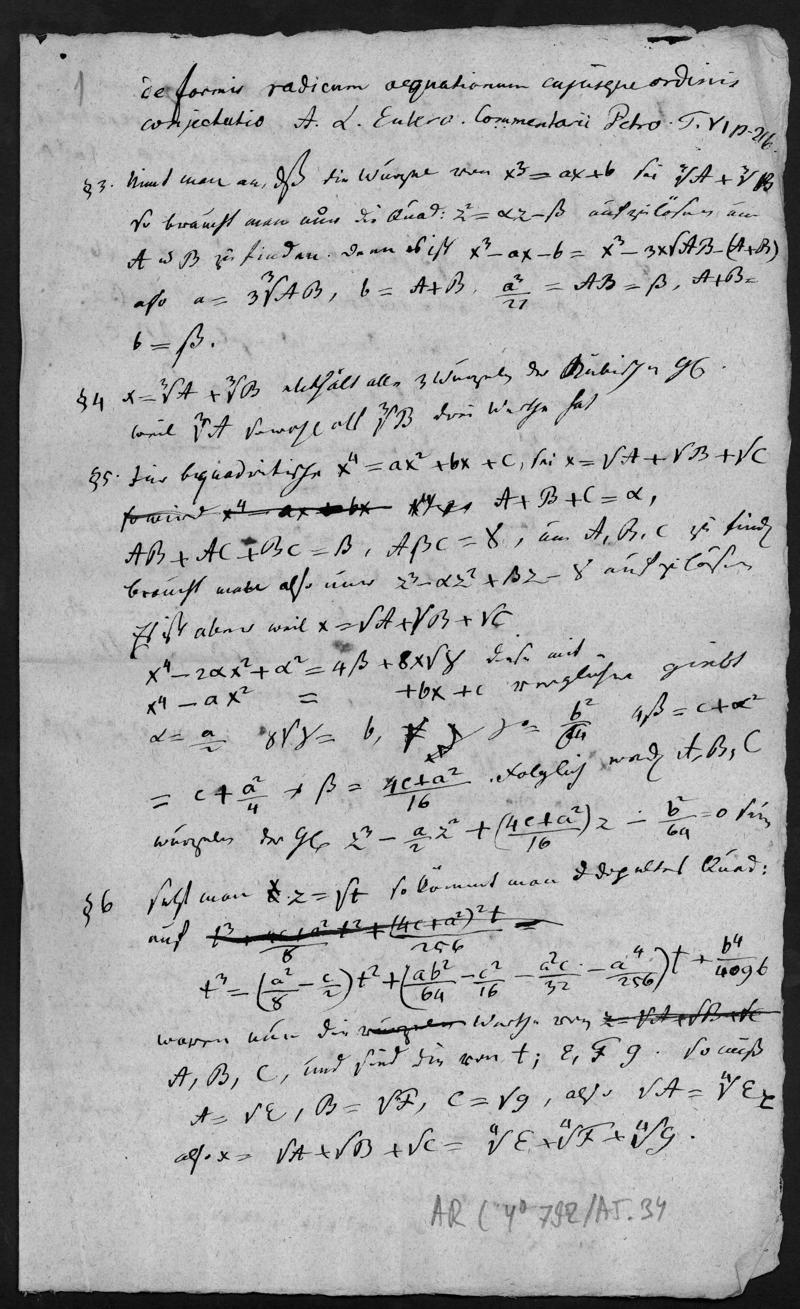 1
de formis radicum aequationum cujusque ordinis
conjectatio A. L. Eulero. Commentarii Petro. T. VI p. 216.
§3. Nimt man an, dß die Wurzel von x³ = ax+b sei ∛A + ∛B
so braucht man nun die Quad: z² = αz − β aufzulösen um
A u B zu finden. denn es ist x³ − ax − b = x³ − 3x∛AB − (A+B)
also a = 3∛AB, b = A+B. a³/27 = AB = β, A+B =
b = β.
§4 x = ∛A + ∛B enthält alle 3 Wurzeln der Kubischen Glch
weil ∛A sowohl als ∛B drei Werthe hat
§5. Für biquadratische x⁴ = ax² + bx + c, sei x = √A + √B + √C
so wird x⁴ = ax + bx A + B + C = α,
AB + AC + BC = β, ABC = γ, um A, B, C zu finden
braucht man also nur z³ − αz² + βz − γ aufzulösen
Es ist aber weil x = √A + √B + √C
x⁴ − 2αx² + α² = 4β + 8x√γ diese mit
x⁴ − ax² = + bx + c verglichen giebt
α = a/2 8√γ = b, γ = b²/64 4β = c + α²
= c + a²/4 β = (4c+a²)/16 . Folglich werden A, B, C
wurzeln der Glch z³ − a/2 z² + ((4c+a²)/16) z − b²/64 = 0 sein
§6 Setzt man z = √t so kömmt man Quad:
auf
t³ = (a²/8 − c/2) t² + (ab²/64 − c²/16 − a²c/32 − a⁴/256) t + b⁴/4096
waren nun die wurzeln Werthe von z = √A + √B + √C
A, B, C, und sind die von t; E, F, G. so muß
A = √E, B = √F, C = √G, also √A = ∜E
also x = √A + √B + √C = ∜E + ∜F + ∜G.
AR ( 4° 792/AJ. 34